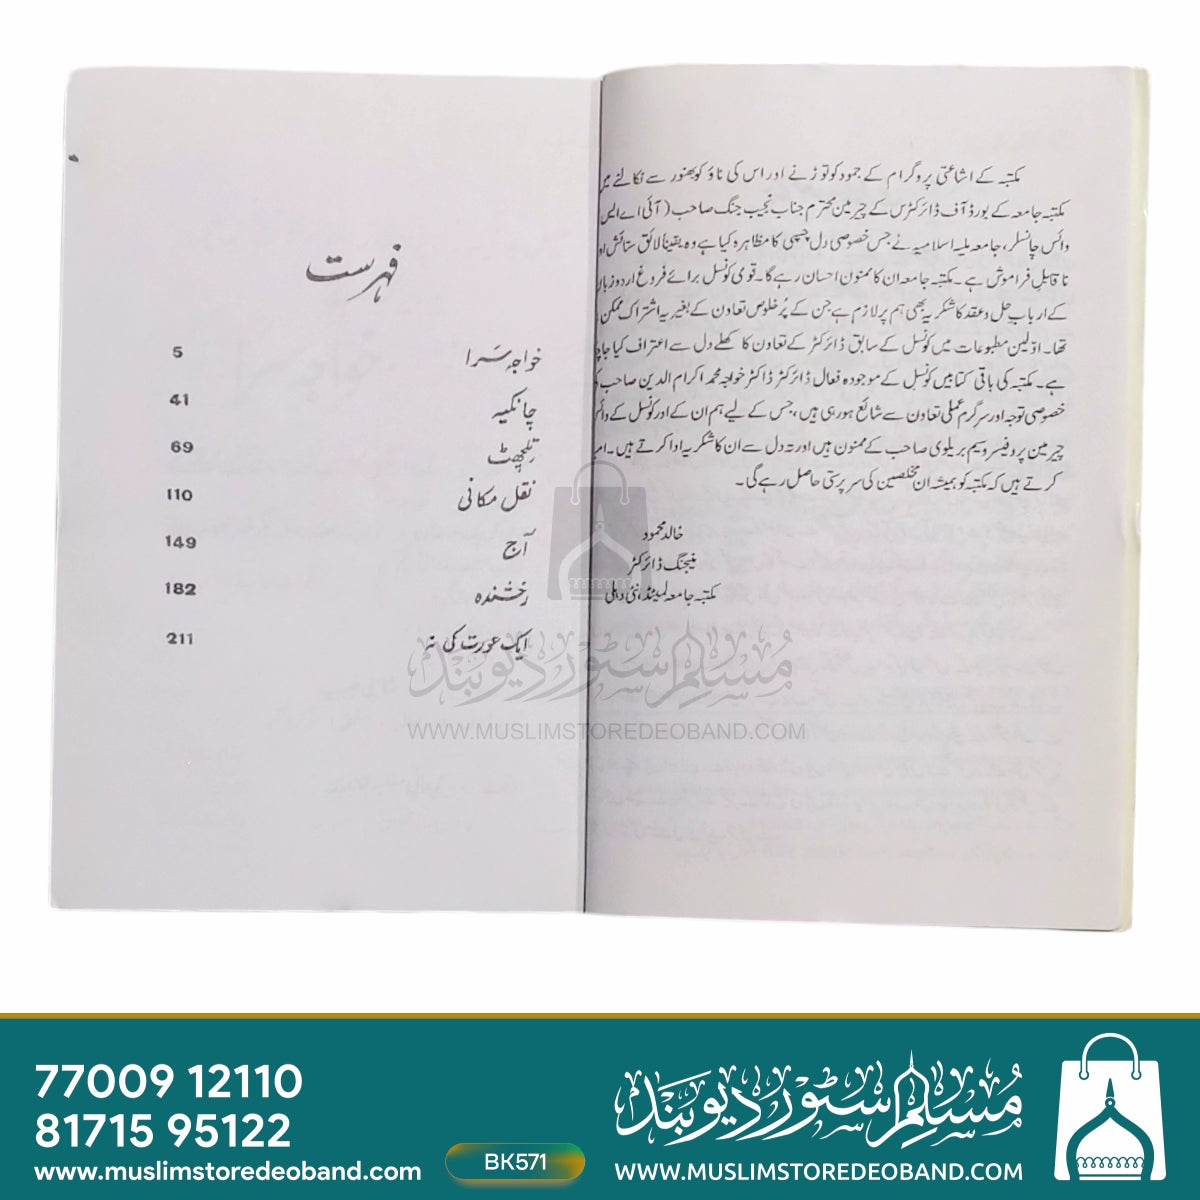 مکتبہ کے اشاعتی پروگرام کے جمود کو توڑنے اور اس کی ناؤ کو بھنور سے نکالنے میں
مکتبہ جامعہ کے بورڈ آف ڈائرکٹرس کے چیرمین محترم جناب نجیب جنگ صاحب (آئی اے ایس
وائس چانسلر، جامعہ ملیہ اسلامیہ نے جس خصوصی دل چسپی کا مظاہرہ کیا ہے وہ یقیناً لائق ستائش او
ناقابلِ فراموش ہے۔ مکتبہ جامعہ ان کا ممنون احسان رہے گا۔ قومی کونسل برائے فروغ اردو زبان
کے ارباب حل و عقد کا شکریہ بھی ہم پر لازم ہے جن کے پُرخلوص تعاون کے بغیر یہ اشتراک ممکن
تھا۔ اوّلین مطبوعات میں کونسل کے سابق ڈائرکٹر کے تعاون کا کھلے دل سے اعتراف کیا جا
ہے۔ مکتبہ کی باقی کتابیں کونسل کے موجودہ فعال ڈائرکٹر ڈاکٹر خواجہ محمد اکرام الدین صاحب
خصوصی توجہ اور سرگرم عملی تعاون سے شائع ہو رہی ہیں، جس کے لیے ہم ان کے اور کونسل کے وائس
چیرمین پروفیسر وسیم بریلوی صاحب کے ممنون ہیں اور تہ دل سے ان کا شکریہ ادا کرتے ہیں۔
کرتے ہیں کہ مکتبہ کو ہمیشہ ان مخلصین کی سرپرستی حاصل رہے گی۔
خالد محمود
منیجنگ ڈائرکٹر
مکتبہ جامعہ لمیٹڈ، نئی دہلی
فہرست
خواجہ سَرا 5
چانکیہ 41
تلچھٹ 69
نقل مکانی 110
آج 149
رخشندہ 182
ایک عورت کی نہ 211
مسلم سٹور دیوبند
WWW.MUSLIMSTOREDEOBAND.COM
77009 12110
81715 95122
www.muslimstoredeoband.com
BK571
مسلم سٹور دیوبند
WWW.MUSLIMSTOREDEOBAND.COM